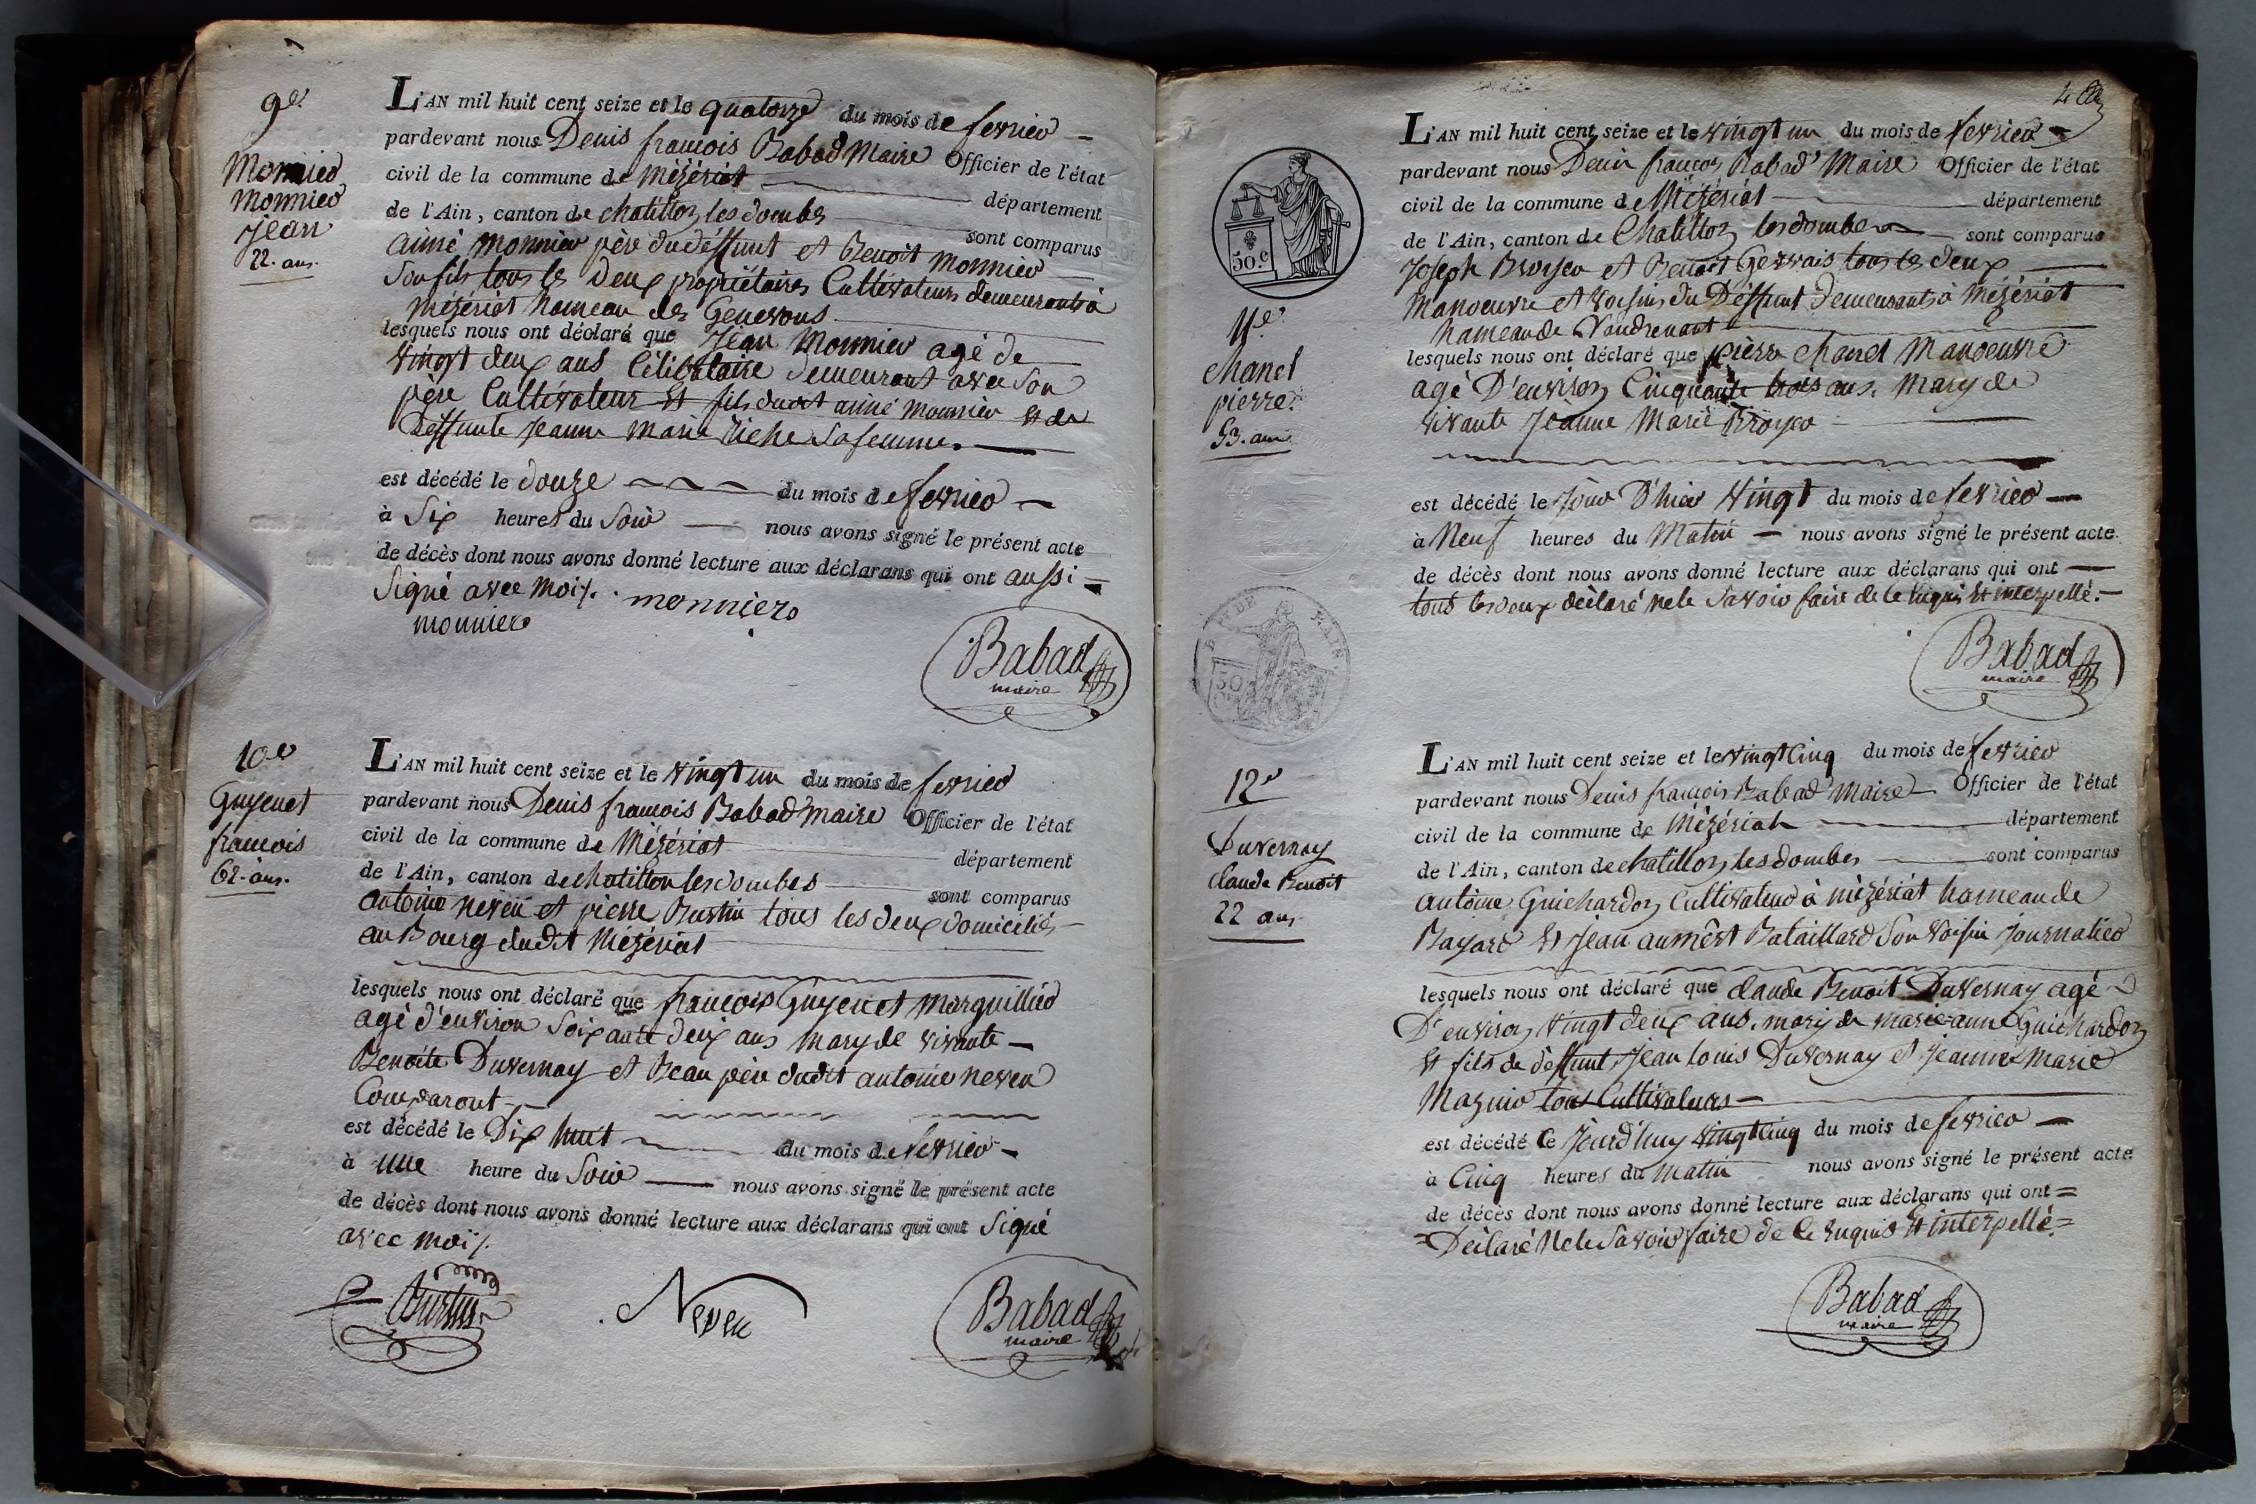 9e
Monnier
Monnier
Jean
22. ans.
L'AN mil huit cent seize et le quatorze du mois de fevrier
pardevant nous Denis francois Babad Maire Officier de l'état
civil de la commune de Mézériat département
de l'Ain, canton de chatillon les dombes sont comparus
aimé Monnier père du déffunt et Benoit Monnier
son fils tous les deux propriètaires Cultivateurs demeurants à
Mézériat hameau des Genevons
lesquels nous ont déclaré que Jean Monnier agé de
vingt deux ans Célibataire demeurant avec son
père Cultivateur et fils dudit aimé Monnier et de
Deffunte Jeanne Marie Riche sa femme.
est décédé le douze du mois de fevrier
à Six heures du Soir nous avons signé le présent acte
de décès dont nous avons donné lecture aux déclarans qui ont aussi
Signé avec moi /. monnier
monnier
Babad
maire
10e
Guyenet
francois
62. ans.
L'AN mil huit cent seize et le vingt un du mois de fevrier
pardevant nous Denis francois Babad Maire Officier de l'état
civil de la commune de Mézériat département
de l'Ain, canton de chatillon les dombes sont comparus
antoine neveu et pierre Burtin tous les deux domiciliés
au Bourg dudit Mézériat
lesquels nous ont déclaré que francois Guyenet Marguillier
agé d'environ Soixante deux ans mary de vivante
Benoite Duvernay et Beau père dudit antoine neveu
Comparant
est décédé le Dix huit du mois de fevrier
à une heure du Soir nous avons signé le présent acte
de décès dont nous avons donné lecture aux déclarans qui ont Signé
avec moi /.
Burtin
Neveu
Babad
maire
50.c
11e
chanel
pierre.
53. ans
DEP. DE L'AIN.
50
12e
Duvernay
claude Benoit
22 ans
L'AN mil huit cent seize et le vingt un du mois de fevrier
pardevant nous Denis francois Babad Maire Officier de l'état
civil de la commune de Mézériat département
de l'Ain, canton de Chatillon les dombes sont comparus
Joseph Broyer et Benoit Gervais tous les deux
Manoeuvre et voisins du Déffunt demeurants à Mézériat
hameau de Vaudrenant
lesquels nous ont déclaré que pierre chanel Manoeuvre
agé D'environ Cinquante trois ans. Mary de
vivante Jeanne Marie Broyer
est décédé le jour D'hier vingt du mois de fevrier
à Neuf heures du Matin nous avons signé le présent acte
de décès dont nous avons donné lecture aux déclarans qui ont
tous les deux déclaré ne le Savoir faire de ce Enquis et interpellé.
Babad
maire
L'AN mil huit cent seize et le vingt Cinq du mois de fevrier
pardevant nous Denis francois Babad Maire Officier de l'état
civil de la commune de Mézériat département
de l'Ain, canton de chatillon les dombes sont comparus
antoine Guichardon Cultivateur à mézériat hameau de
Bayard et Jean aumêst Bataillard Son Voisin journalier
lesquels nous ont déclaré que claude Benoit Duvernay agé
D'environ vingt deux ans. mary de marie anne Guichardon
et fils de déffunt Jean Louis Duvernay et Jeanne Marie
Maznio tous Cultivateurs
est décédé Ce Jourd'huy vingt Cinq du mois de fevrier
à Cinq heures du Matin nous avons signé le présent acte
de décès dont nous avons donné lecture aux déclarans qui ont
Déclaré Ne le Savoir faire de Ce Enquis et interpellé
Babad
maire